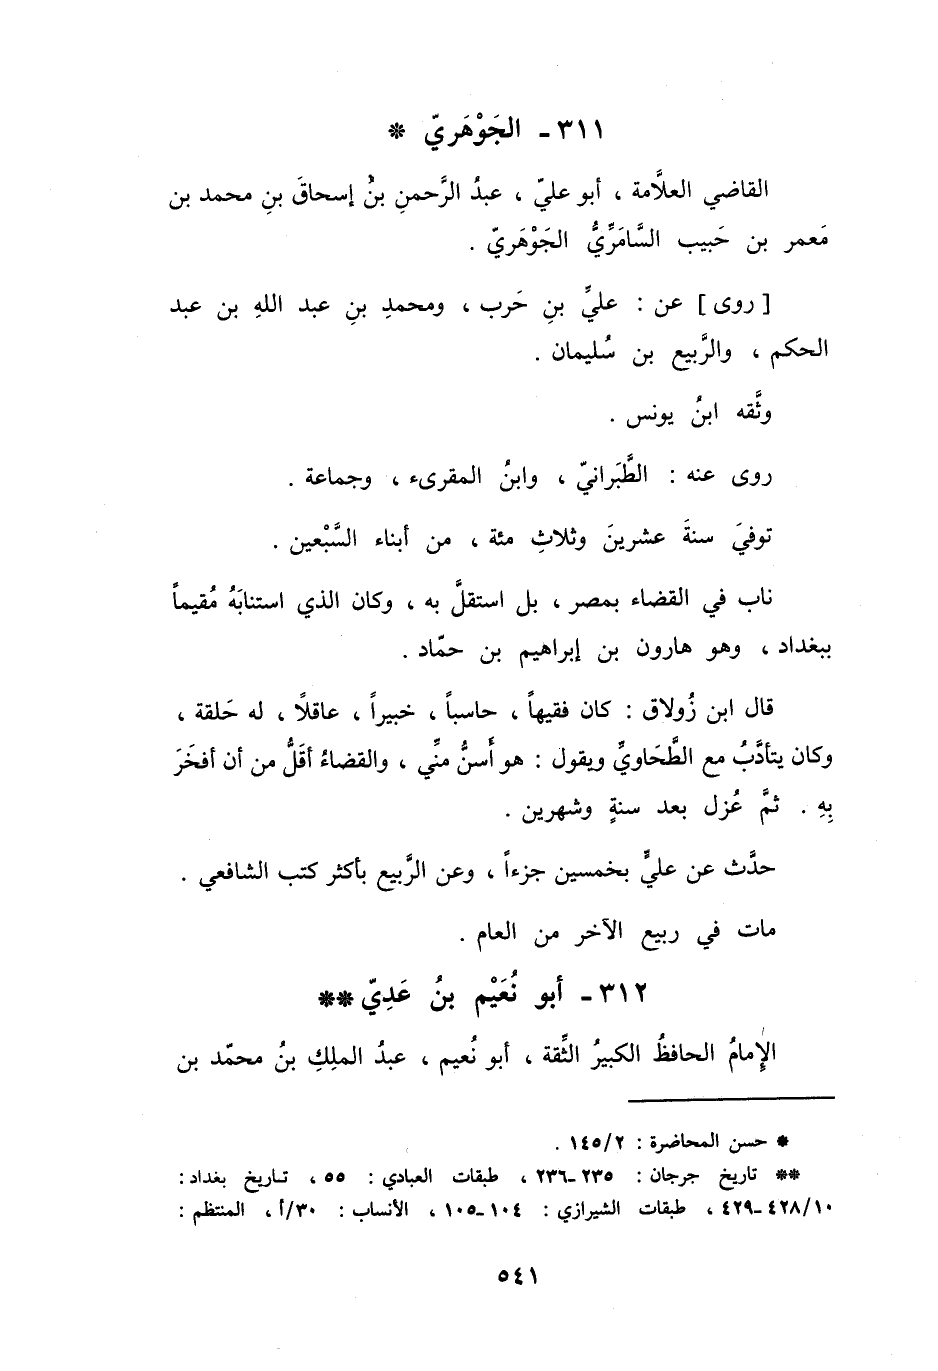 ٣١١ - الجَوْهَريّ *
القاضي العلاَّمة ، أبو عليّ ، عبدُ الرَّحمنِ بنُ إسحاقَ بنِ محمد بن
مَعمر بن حَبيب السَّامَرِّيُّ الجَوْهَريّ .
[ روى ] عن : عليِّ بنِ حَرب ، ومحمدِ بنِ عبد اللهِ بن عبد
الحكم ، والرَّبيع بن سُليمان .
وثَّقه ابنُ يونس .
روى عنه : الطَّبَرانيّ ، وابنُ المقرىء ، وجماعة .
توفيَ سنةَ عشرينَ وثلاثِ مئة ، من أبناء السَّبْعين .
ناب في القضاء بمصر ، بل استقلَّ به ، وكان الذي استنابَهُ مُقيماً
ببغداد ، وهو هارون بن إبراهيم بن حمّاد .
قال ابن زُولاق : كان فقيهاً ، حاسباً ، خبيراً ، عاقلًا ، له حَلقة ،
وكان يتأدَّبُ مع الطَّحَاويِّ ويقول : هو أَسنُّ منِّي ، والقضاءُ أقَلُّ من أن أفخَرَ
بِهِ . ثمَّ عُزل بعد سنةٍ وشهرين .
حدَّث عن عليٍّ بخمسين جزءاً ، وعن الرَّبيع بأكثر كتب الشافعي .
مات في ربيع الآخر من العام .
٣١٢ - أبو نُعَيْم بنُ عَدِيّ **
الإِمامُ الحافظُ الكبيرُ الثِّقة ، أبو نُعيم ، عبدُ الملِكِ بنُ محمّد بن
* حسن المحاضرة : ١٤٥/٢ .
** تاريخ جرجان : ٢٣٥-٢٣٦ ، طبقات العبادي : ٥٥ ، تاريخ بغداد :
٤٢٨/١٠-٤٢٩ ، طبقات الشيرازي : ١٠٤-١٠٥ ، الأنساب : ٣٠/أ ، المنتظم :
٥٤١